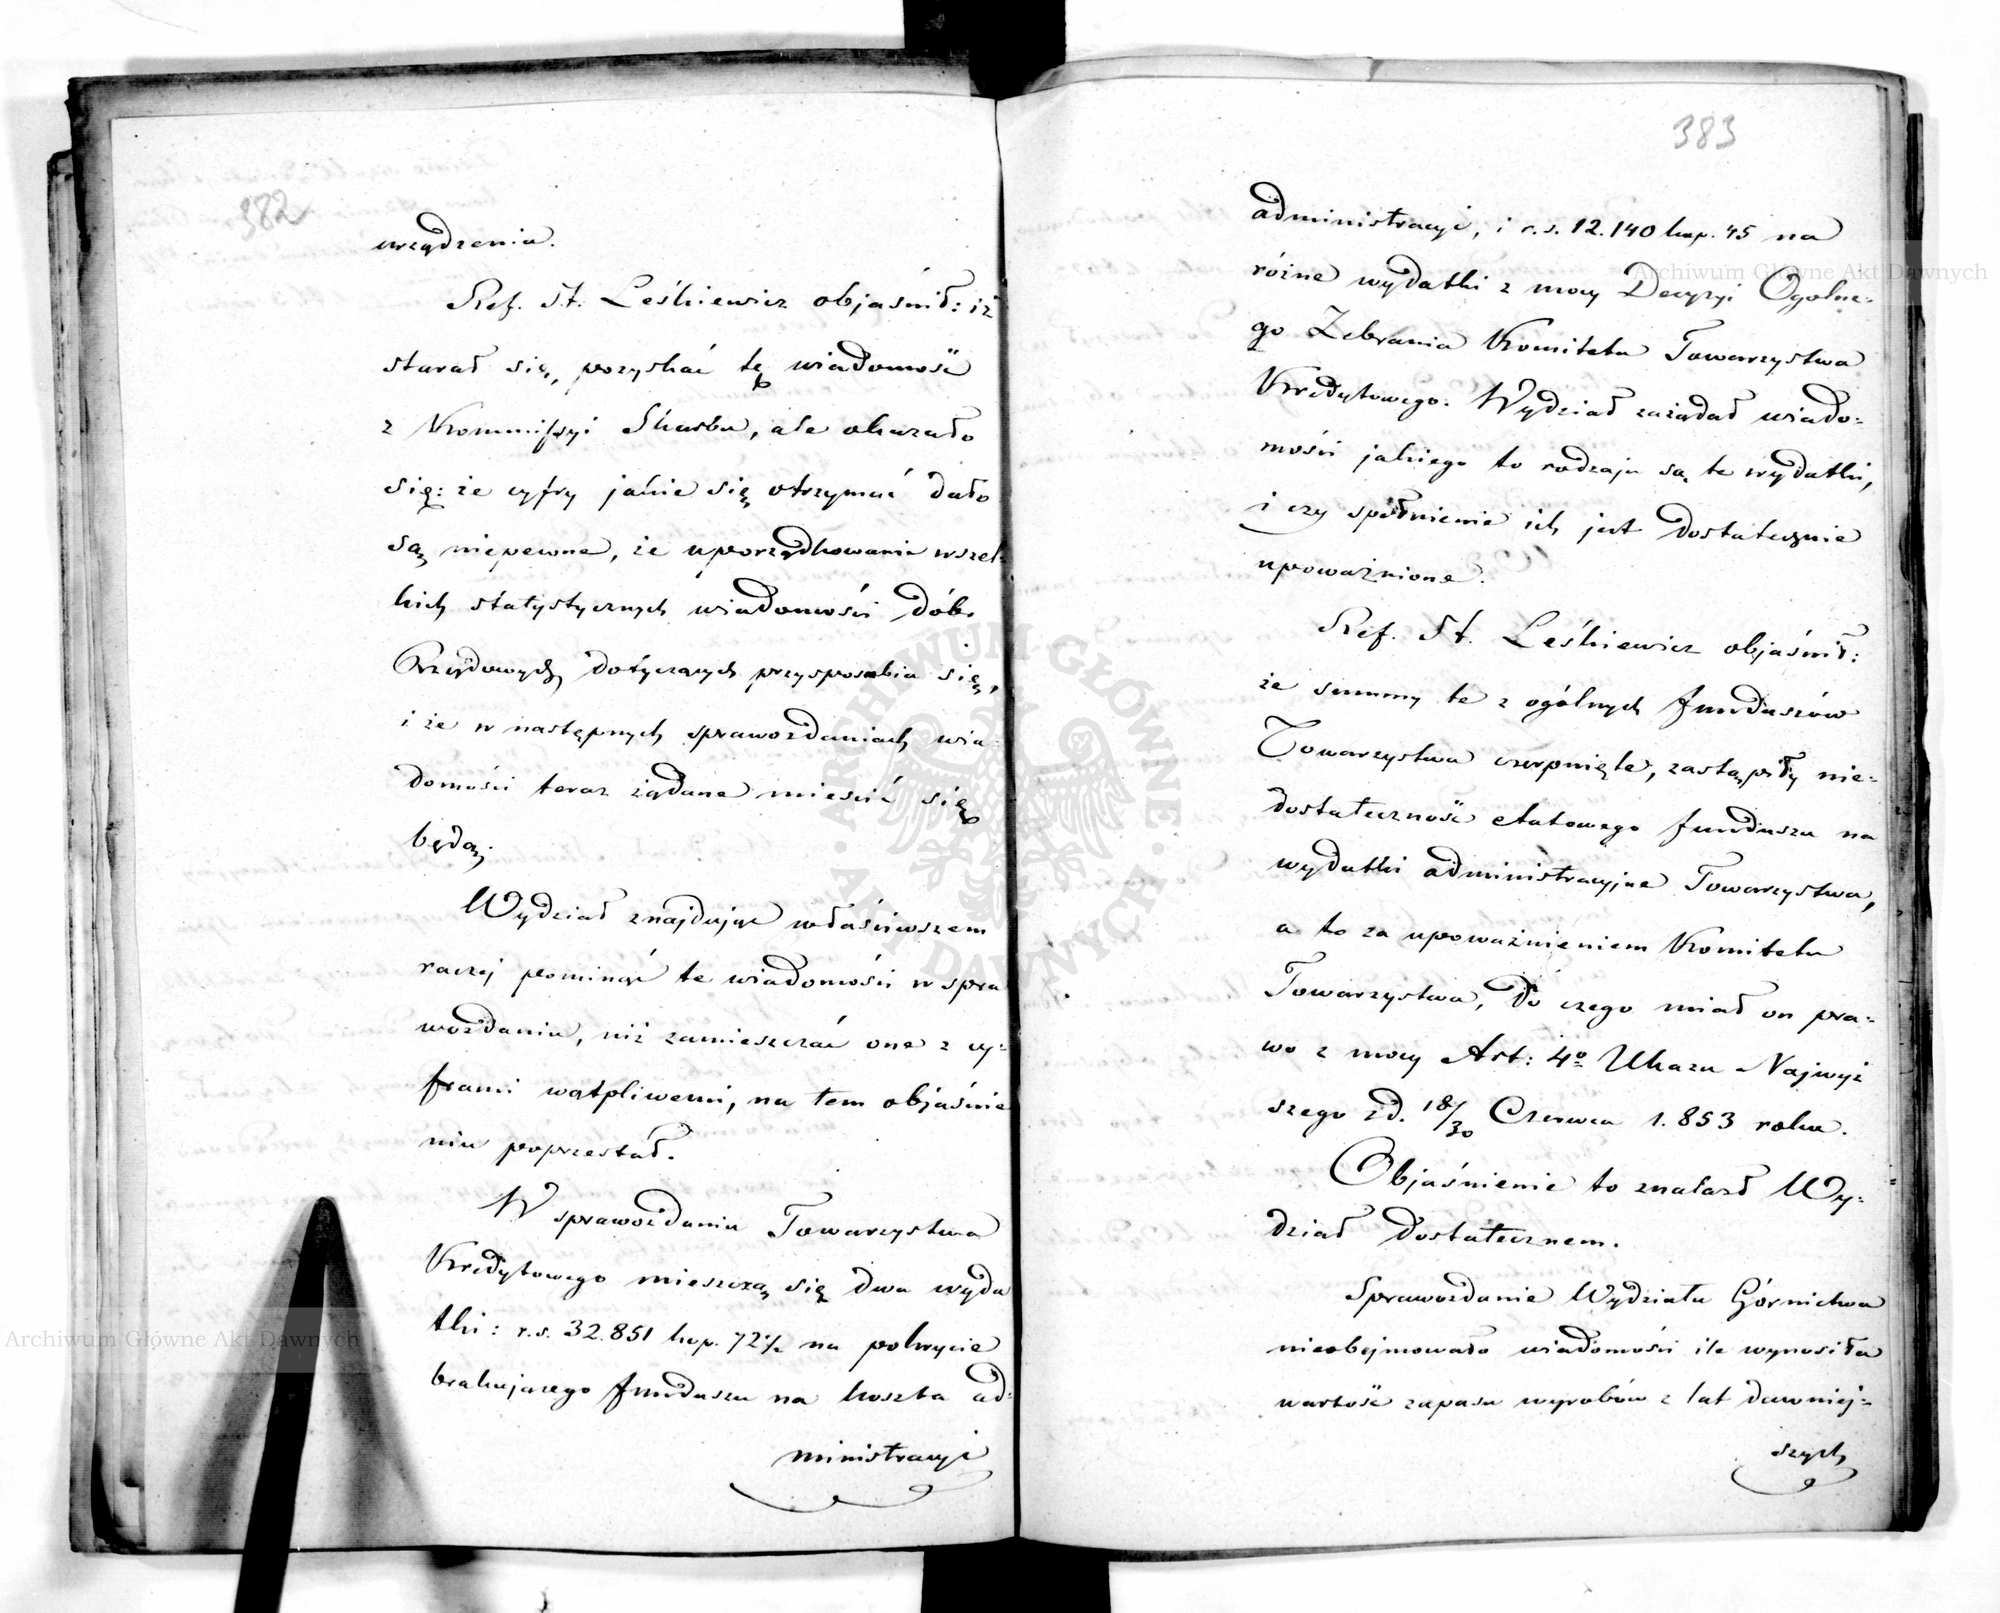 382
urządzenia.
Ref. St. Leśkiewicz objaśnił: iż
starał się, pozyskać tę wiadomość
z Kommissyi Skarbu, ale okazało
się: że cyfry jakie się otrzymać dało
są niepewne, że uporządkowanie wszel-
kich statystycznych wiadomości dóbr
Rządowych dotyczących przysposabia się,
i że w następnych sprawozdaniach wia-
domości teraz żądane mieścić się
będą;
Wydział znajdując właściwszem
raczej pominąć te wiadomości w spra
wozdaniu, niż zamieszczać one z cy-
frami wątpliwemi, na tem objaśnie
niu poprzestał.
W sprawozdaniu Towarzystwa
Kredytowego mieszczą się dwa wyda
tki: r.s. 32.851 kop. 72½ na pokrycie
brakującego funduszu na koszta ad-
ministracyi
383
administracyi, i r.s. 12.140 kop. 45 na
różne wydatki z mocy Decyzyi Ogólne-
go Zebrania Komitetu Towarzystwa
Kredytowego. Wydział zażądał wiado-
mości jakiego to rodzaju są te wydatki,
i czy spełnienie ich jest dostatecznie
upoważnione.
Ref. St. Leśkiewicz objaśnił:
że summy te z ogólnych funduszów
Towarzystwa czerpnięte, zastąpiły nie-
dostateczność etatowego funduszu na
wydatki administracyjne Towarzystwa,
a to za upoważnieniem Komitetu
Towarzystwa, do czego miał on pra-
wo z mocy Art: 4º Ukazu Najwyż
szego z d. 18/30 Czerwca 1.853 roku.
Objaśnienie to znalazł Wy-
dział dostatecznem.
Sprawozdanie Wydziału Górnictwa
nieobejmowało wiadomości ile wynosiła
wartość zapasu wyrobów z lat dawniej-
szych
Archiwum Główne Akt Dawnych
ARCHIWUM GŁÓWNE AKT DAWNYCH
Archiwum Główne Akt Dawnych